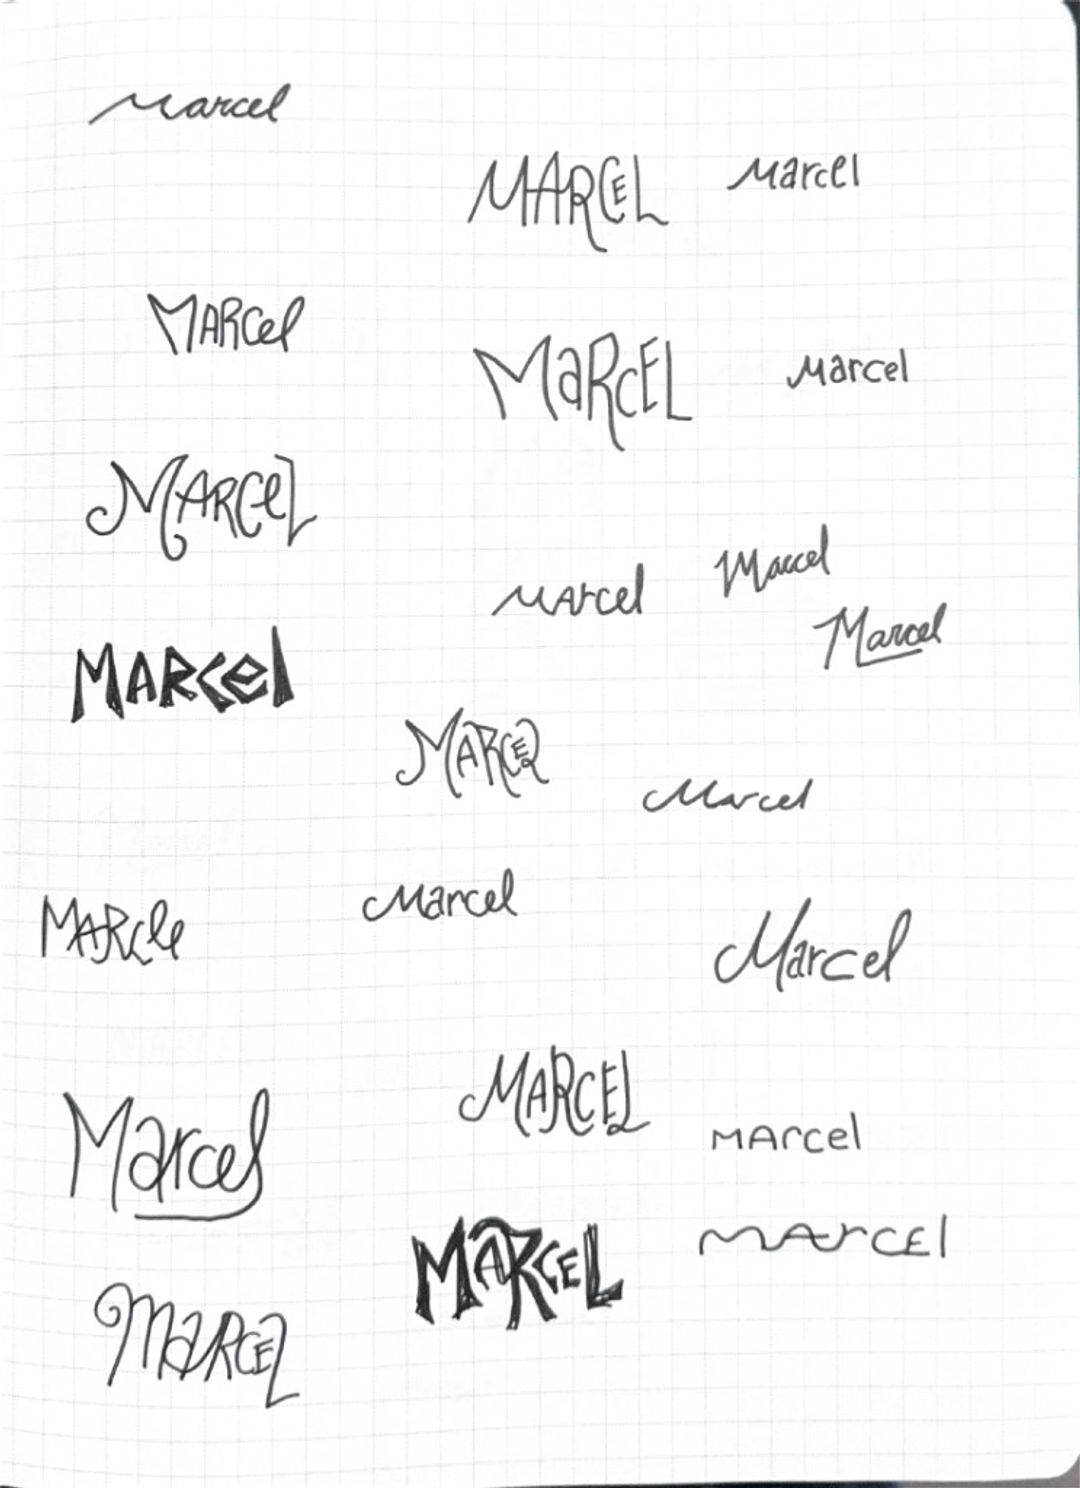 Marcel
MARCEL
Marcel
MARCel
MaRCEL
Marcel
MARCeL
MArcel
Marcel
Marcel
MARCel
MARCEL
Marcel
MARCle
Marcel
Marcel
MARCEL
Marcel
MArcel
MARCEL
MArCEl
MaRCEL